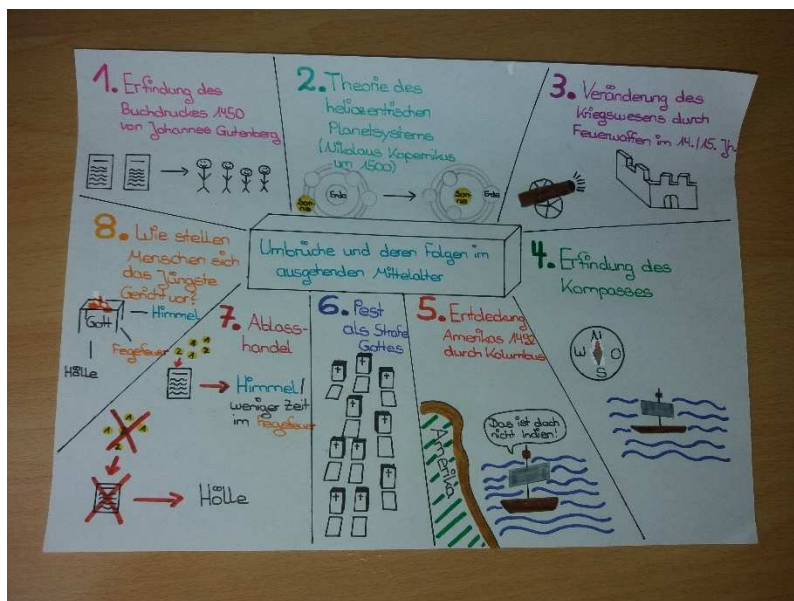 1. Erfindung des
Buchdruckes 1450
von Johannes Gutenberg
2. Theorie des
heliozentrischen
Planetsystems
(Nikolaus Kopernikus
um 1500)
Erde
Son-
ne
Son-
ne
Erde
3. Veränderung des
Kriegswesens durch
Feuerwaffen im 14./15. Jh.
Umbrüche und deren Folgen im
ausgehenden Mittelalter
4. Erfindung des
Kompasses
N
W O
S
5. Entdeckung
Amerikas 1492
durch Kolumbus
Das ist doch
nicht Indien!
Amerika
6. Pest
als Strafe
Gottes
7. Ablass-
handel
2 1 1
1 2
Himmel/
weniger Zeit
im Fegefeuer
1 1
2
Hölle
8. Wie stellen
Menschen sich
das Jüngste
Gericht vor?
Gott
Himmel
Fegefeuer
Hölle